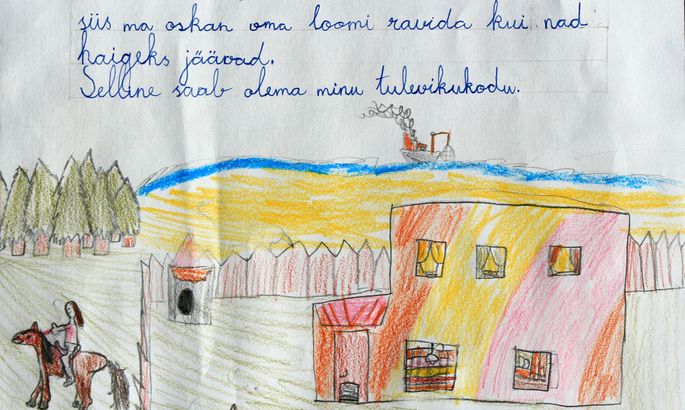 siis ma oskan oma loomi ravida kui nad
haigeks jäävad.
Selline saab olema minu tulevikukodu.